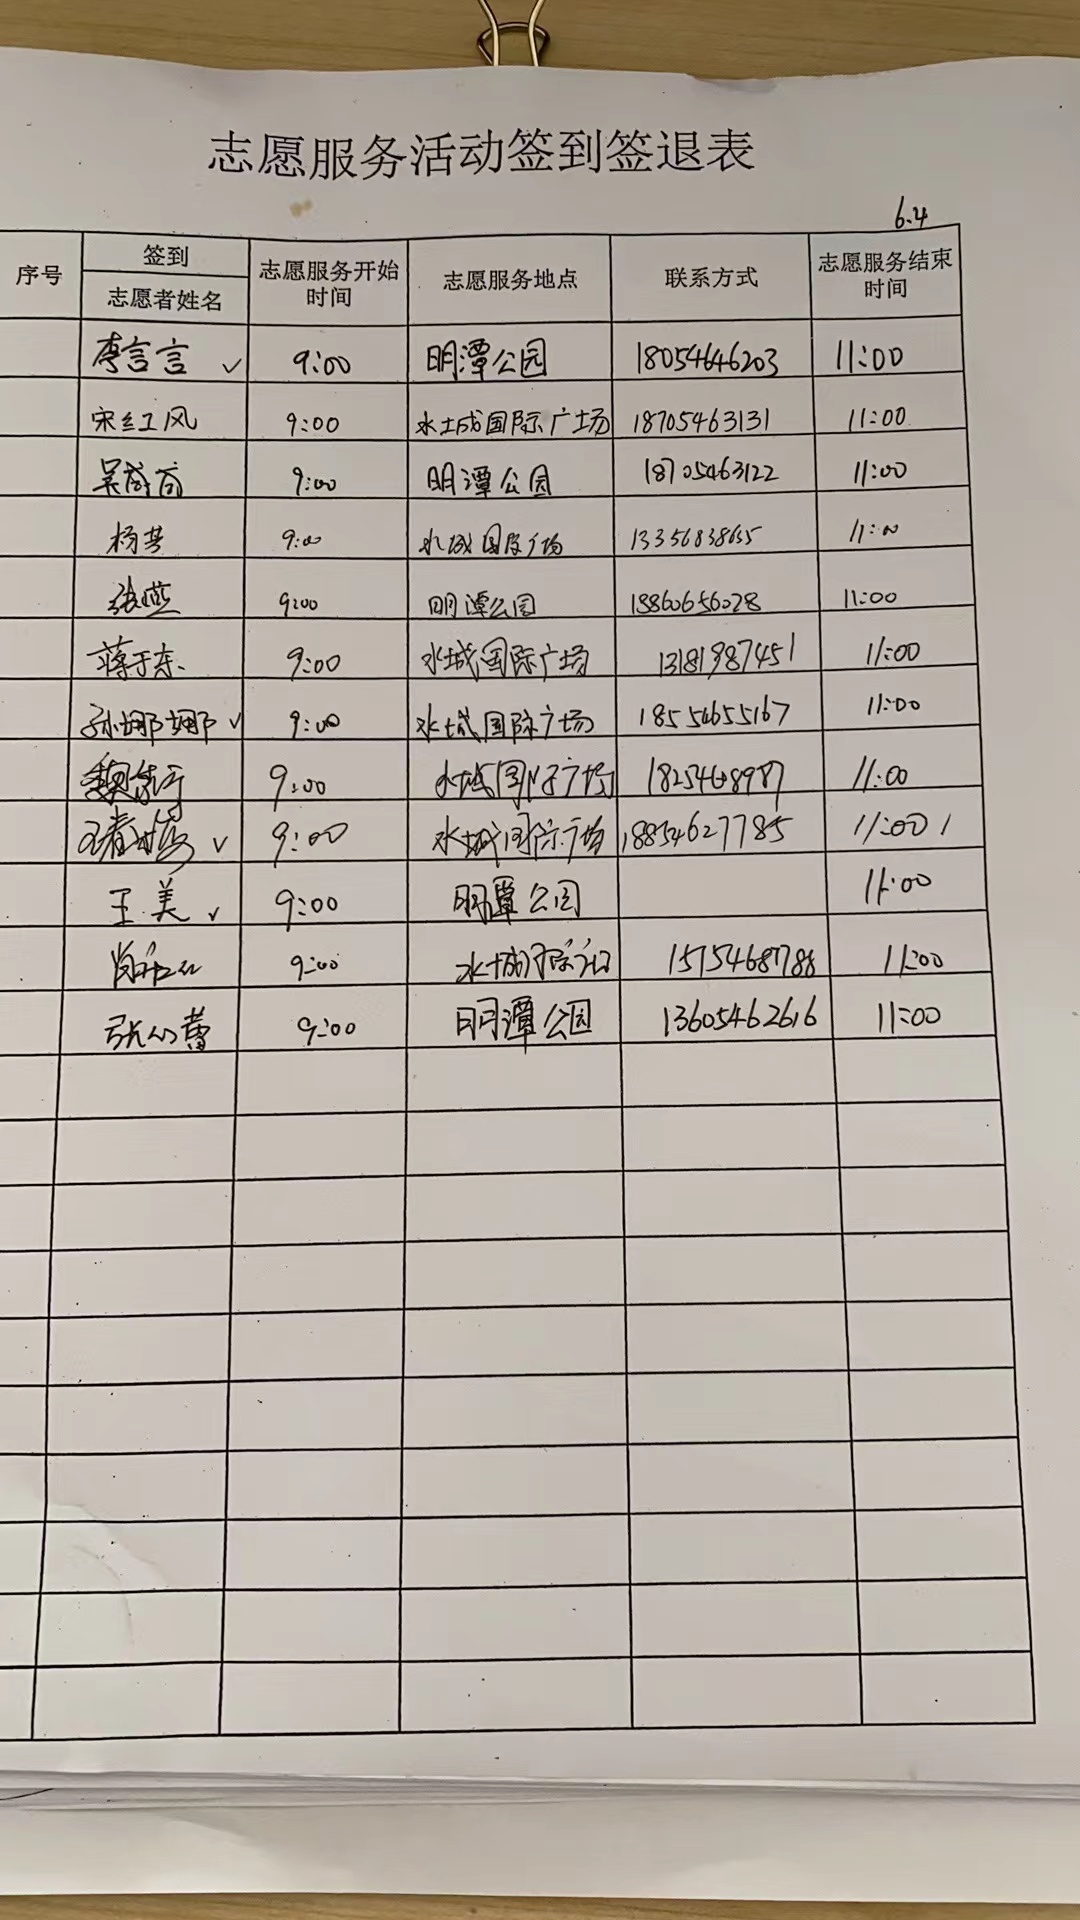 志愿服务活动签到签退表
6.4
序号 签到 志愿者姓名 志愿服务开始时间 志愿服务地点 联系方式 志愿服务结束时间
李言言 ✓ 9:00 明潭公园 18054646203 11:00
宋红风 9:00 水城国际广场 18705463131 11:00
9:00 明潭公园 18705463122 11:00
杨芸 9:00 水城国际广场 11:00
张燕 9:00 明潭公园 18860656028 11:00
蒋于东 9:00 水城国际广场 13181987451 11:00
孙娜娜 ✓ 9:00 水城国际广场 18554655167 11:00
9:00 水城国际广场 11:00
✓ 9:00 水城国际广场 18854627785 11:00
王美 ✓ 9:00 明潭公园 11:00
9:00 水城国际广场 15754687788 11:00
张心蕾 9:00 明潭公园 13605462616 11:00